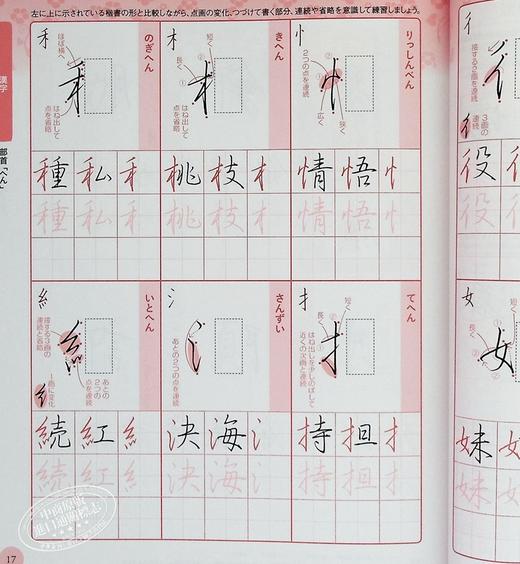 左に上に示されている楷書の形と比較しながら、点画の変化、つづけて書く部分、連続や省略を意識して練習しましょう。
漢字
部首「へん」
りっしんべん
忄
2つの点を連続
狭く
広く
情 悟 忄
情 悟 忄
きへん
木
短く
長く
はね出して
点を省略
桃 枝 木
桃 枝 木
のぎへん
禾
ほぼ横へ
はね出して
点を省略
種 私 禾
種 私 禾
てへん
扌
短く
長く
はね出しを少しのばして
近くの次画と連続
持 担 扌
持 担 扌
さんずい
氵
あとの2つの点を連続
決 海 氵
決 海 氵
いとへん
糸
接する3画の
連続と省略
一画に変化
あとの
2つの
点を連続
続 紅 糸
続 紅 糸
彳
接する2画を連続
3画の
連続
役
役
女
短く
長く
妹
妹
17